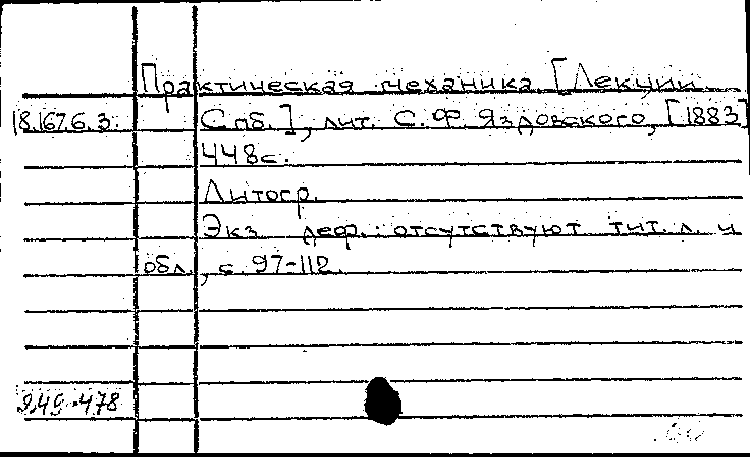 Практическая механика. [Лекции.
18.167.6.3. Спб.], лит. С.Ф. Яздовского, [1883]
448с.
Литогр.
Экз. деф.: отсутствуют тит. л. и
обл., с. 97-112.
949-478